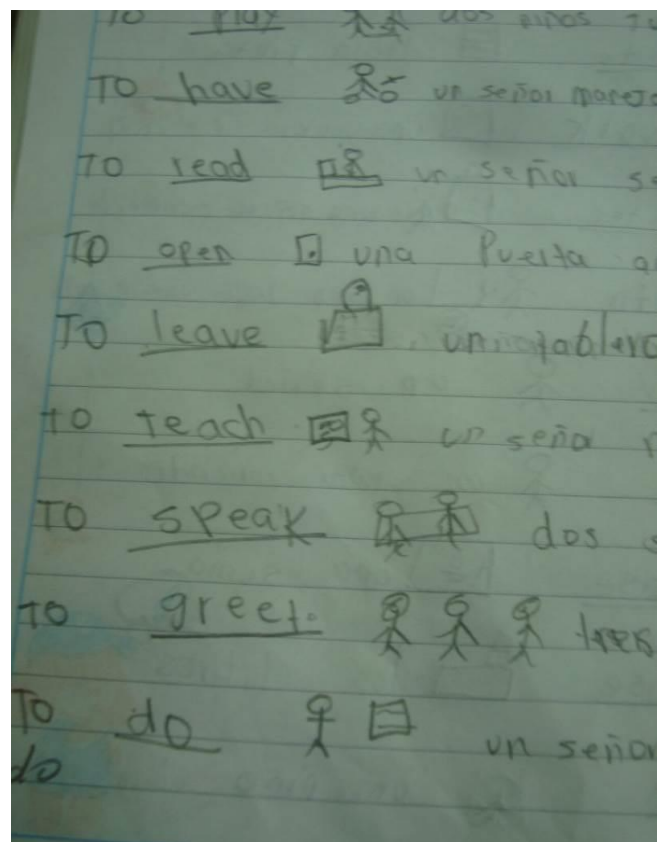 TO play dos niños
TO have un señor
TO read un señor
TO open una Puerta
TO leave un tablero
TO teach un seña
TO speak dos
TO greet. tres
TO do un señor
do